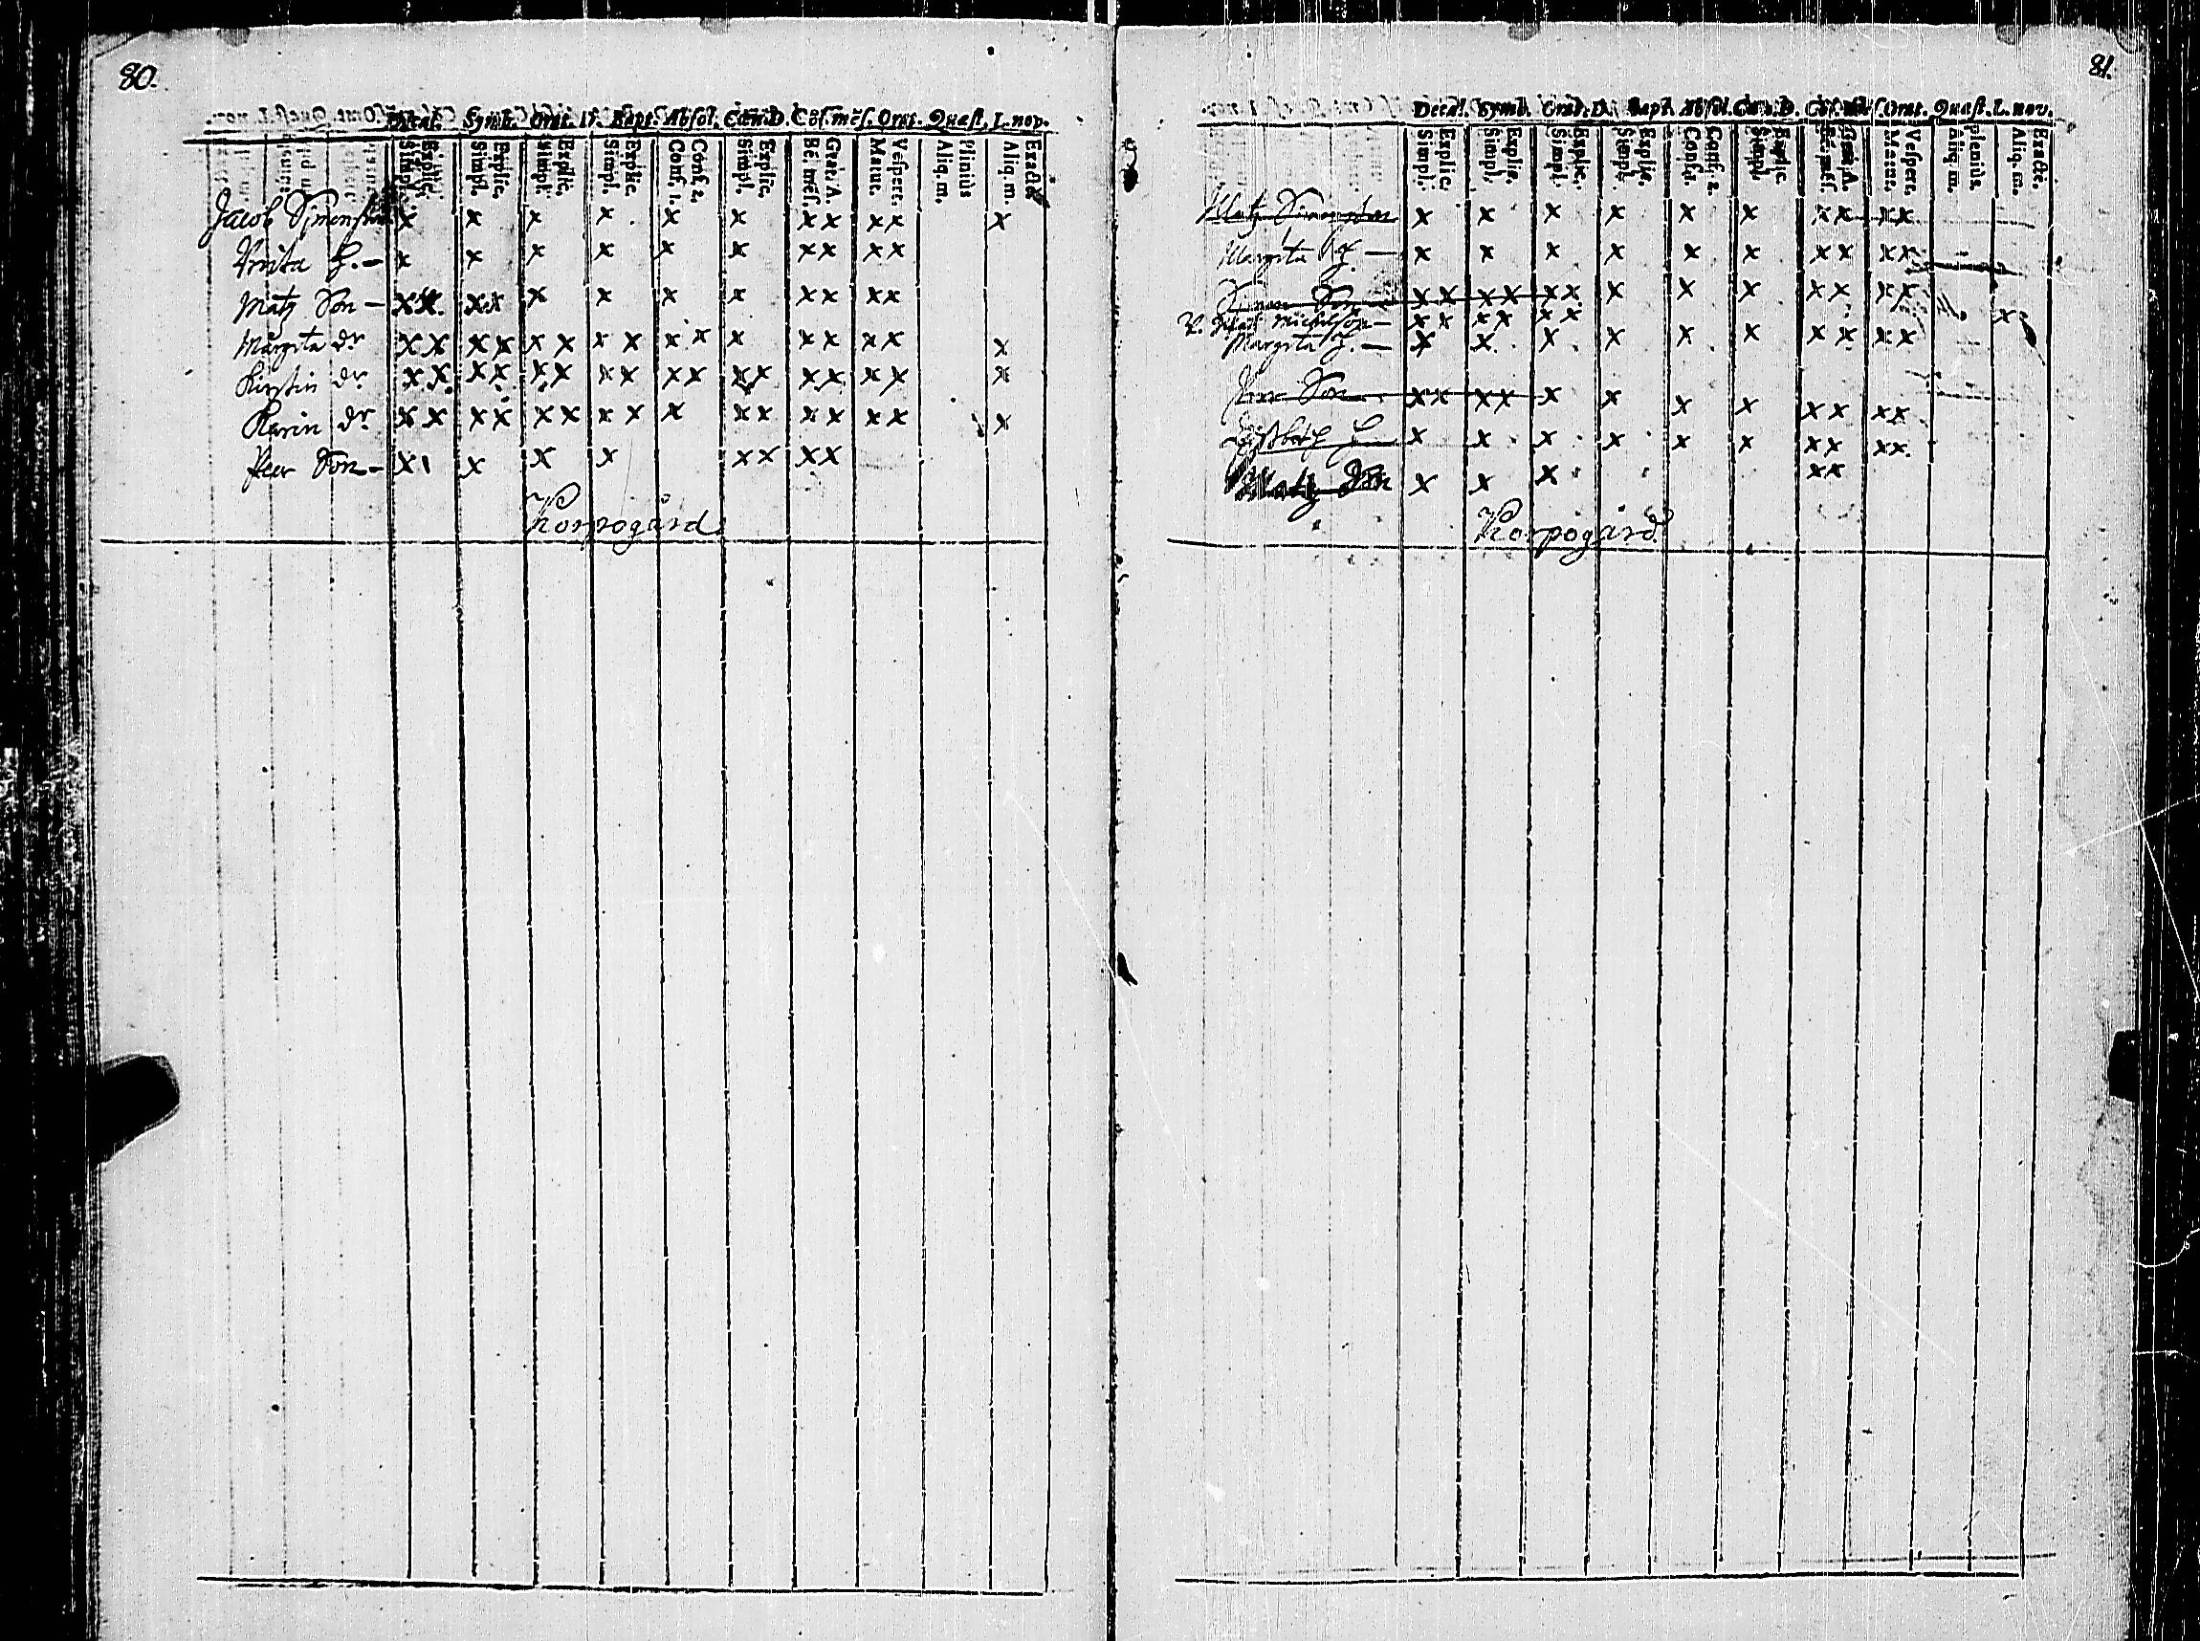 80.
Decal. Symb. Orat. D. Bapt. Absol. Cœn. D. Cõſ. mẽſ. Orat. Quæſt. L. nov.
Simpl. Explic. Simpl. Explic. Simpl. Explic. Simpl. Explic. Conf. 1. Conf. 2. Simpl. Explic. Be. mẽſ. Grat. A. Matut. Veſpert. Aliq. m. Pleniùs Aliq. m. Exactè
Jacob x x x x x x x x x x x
h. – x x x x x x x x x x
Matz Son – x x x x x x x x x x x x
Margita dr x x x x x x x x x x x x x x x x
Kirstin dr x x x x x x x x x x x x x x x x x
Karin dr x x x x x x x x x x x x x x x x
Peer Son – x x x x x x x x
Korpogård
81.
Decal. Symb. Orat. D. Bapt. Absol. Cœn. D. Cõſ. mẽſ. Orat. Quæſt. L. nov.
Simpl. Explic. Simpl. Explic. Simpl. Explic. Simpl. Explic. Conf. 1. Conf. 2. Simpl. Explic. Be. mẽſ. Grat. A. Matut. Veſpert. Aliq. m. pleniùs. Aliq. m. Exactè.
Matz x x x x x x x x x x
Margita – x x x x x x x x x x
Son x x x x x x x x x x x x x
Michelson – x x x x x x x
Margita h. – x x x x x x x x x x
Son x x x x x x x x x x x x
h x x x x x x x x x x
Matz Son x x x x x
Korpogård